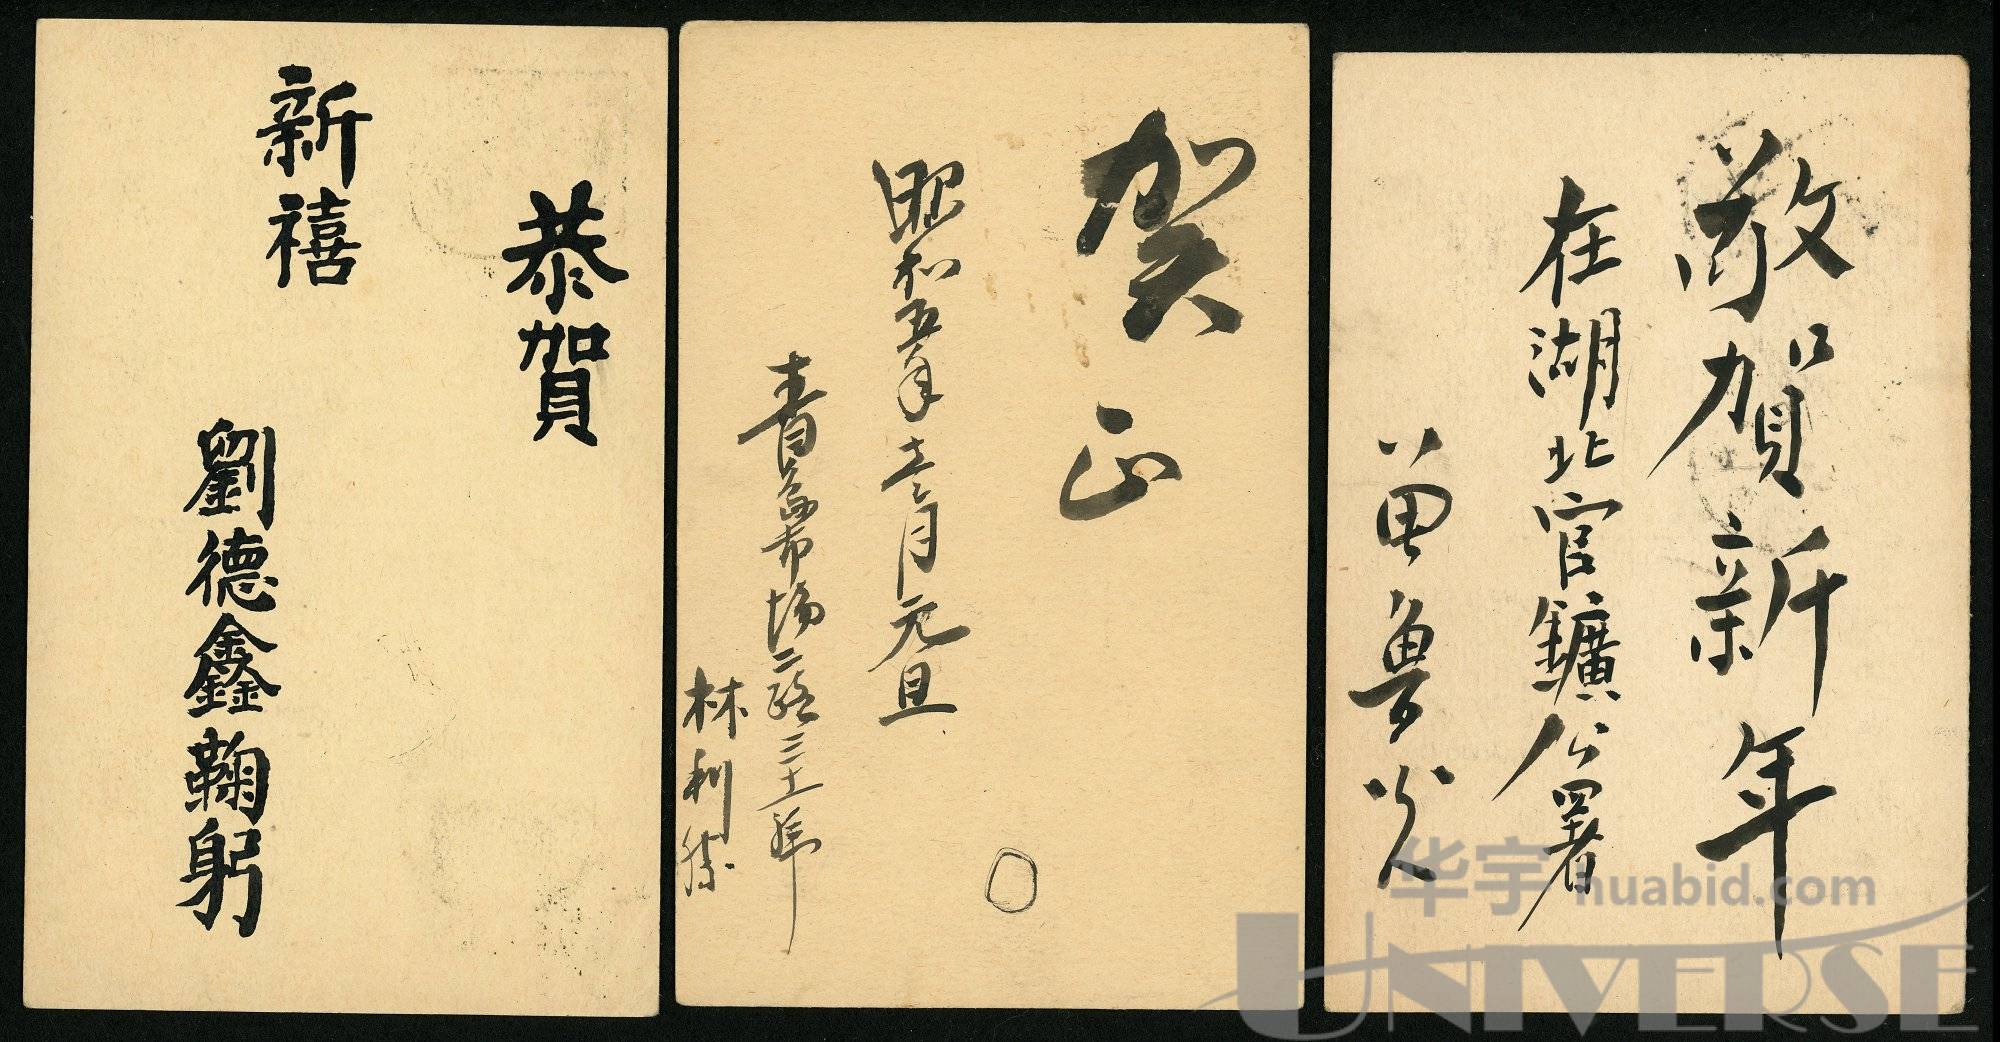 恭賀
新禧
劉德鑫鞠躬
賀正
昭和五年壹月元旦
青島市場二路三十一号
林利勝
敬賀新年
在湖北官鑛公署
苗魯
华宇 huabid.com
UNIVERSE